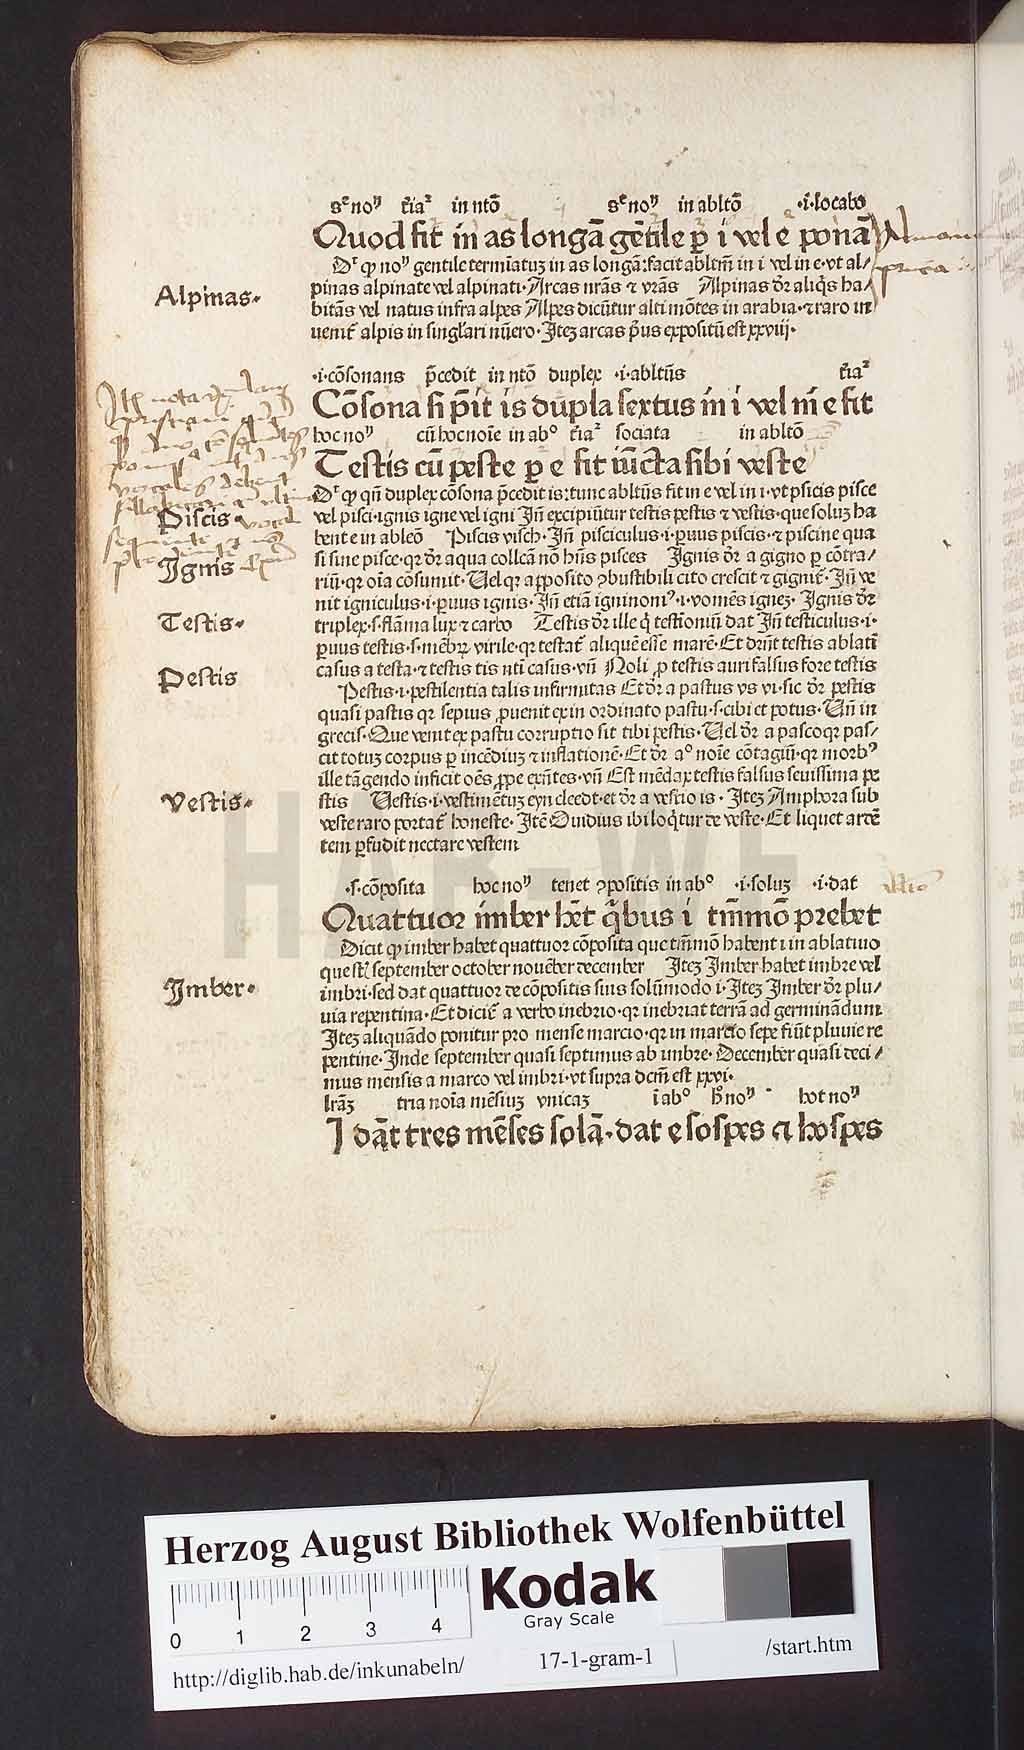 sᵉ noᵛ t̄iaꝛ in ntō sᵉ noᵛ in abltō ·i·locabo
Quod fit in as longā gētile ꝑ i vel e ponā
Dꝛ ꝙ noᵛ gentile termīatuꝫ in as longā:facit abltm̄ in i vel in e·vt al/
pinas alpinate vel alpinati·Arcas nrās ⁊ vrās Alpinas dr̄ aliq̇s ha/
Alpinas·
bitās vel natus infra alpes Alpes dicūtur alti mōtes in arabia·⁊ raro in
uenit᷑ alpis in singl'ari nūero·Iteꝫ arcas p̄us expositū est xxviij·
·i·cōsonans p̄cedit in ntō duplex ·i·abltūs t̄iaꝛ
Cōsona si p̄it is dupla sextus in i vel in e fit
hoc noᵛ cū hoc noīe in abº t̄iaꝛ sociata in abltō
Testis cū peste ꝑ e fit iūcta sibi veste
Dꝛ ꝙ qn̄ duplex cōsona p̄cedit is:tunc abltūs fit in e vel in i·vt piscis pisce
Piscis·
vel pisci·ignis igne vel igni Jn̄ excipiūtur testis pestis ⁊ vestis·que soluꝫ ha
bent e in ableō Piscis visch·Jn̄ pisciculus·i·ꝑuus piscis·⁊ piscine qua
si sine pisce·qꝛ dr̄ aqua collcā nō hn̄s pisces Ignis dr̄ a gigno ꝑ cōtra/
Ignis
riū·qꝛ oīa cōsumit·Uel qꝛ apposito ꝯbustibili cito crescit ⁊ gignit᷑·Jn̄ ve
nit igniculus·i·ꝑuus ignis·Jn̄ etiā igninoniꝰ·i·vomēs igneꝫ· Ignis dr̄
triplex·s·flāma lux·⁊ carbo Testis dr̄ ille q̇ testioniū dat Jn̄ testiculus·i·
Testis·
ꝑuus testis·s·mēbꝝ virile·qꝛ testat᷑ aliquē esse marē·Et drn̄t testis ablatī
casus a testa·⁊ testis tis ntī casus·vn̄ Noli ꝓ testis auri falsus fore testis
Pestis
Pestis·i·pestilentia talis infirmitas Et dr̄ a pastus vs vi·sic dr̄ pestis
quasi pastis qꝛ sepius ꝓuenit ex in ordinato pastu·s·cibi et potus·Un̄ in
grecis·Que venit ex pastu corruptio sit tibi pestis·Uel dr̄ a pasco qꝛ pas/
cit totuꝫ corpus ꝑ incēdiuꝫ ⁊ inflationē·Et dr̄ aº noīe cōtagiū·qꝛ morbꝰ
ille tāgendo inficit oēs ꝓpe exn̄tes·vn̄ Est mēdax testis falsus seuissima pe
Vestis·
stis Uestis·i·vestimētuꝫ eyn cleedt·et dr̄ a vestio is· Iteꝫ Amphora sub
veste raro portat᷑ honeste·Itē Ouidius ibi loq̄tur de veste·Et liquet ardē
tem ꝑfudit nectare vestem
·s·cōposita hoc noᵛ tenet ꝯpositis in abº ·i·soluꝫ ·i·dat
Quattuor imber hēt q̇bus i tm̄mō prebet
Dicit ꝙ imber habet quattuor cōposita que tm̄mō habent i in ablatiuo
que st᷑ september october nouēber december Iteꝫ Imber habet imbre vel
Imber·
imbri·sed dat quattuor de cōpositis suis solūmodo i·Iteꝫ Imber dr̄ plu/
uia repentina·Et dicit᷑ a verbo inebrio·qꝛ inebriat terrā ad germinādum
Iteꝫ aliquādo ponitur pro mense marcio·qꝛ in marcio sepe fiūt pluuie re
pentine·Inde september quasi septimus ab imbre·December quasi deci/
mus mensis a marco vel imbri·vt supra dcm̄ est xxvi·
lrāꝫ tria noīa mēsiuꝫ vnicaꝫ ī abº hº noᵛ hot noᵛ
I dāt tres mēses solā·dat e sospes ⁊ hospes
HAB-WF
Herzog August Bibliothek Wolfenbüttel
0 1 2 3 4
Kodak
Gray Scale
http://diglib.hab.de/inkunabeln/
17-1-gram-1
/start.htm